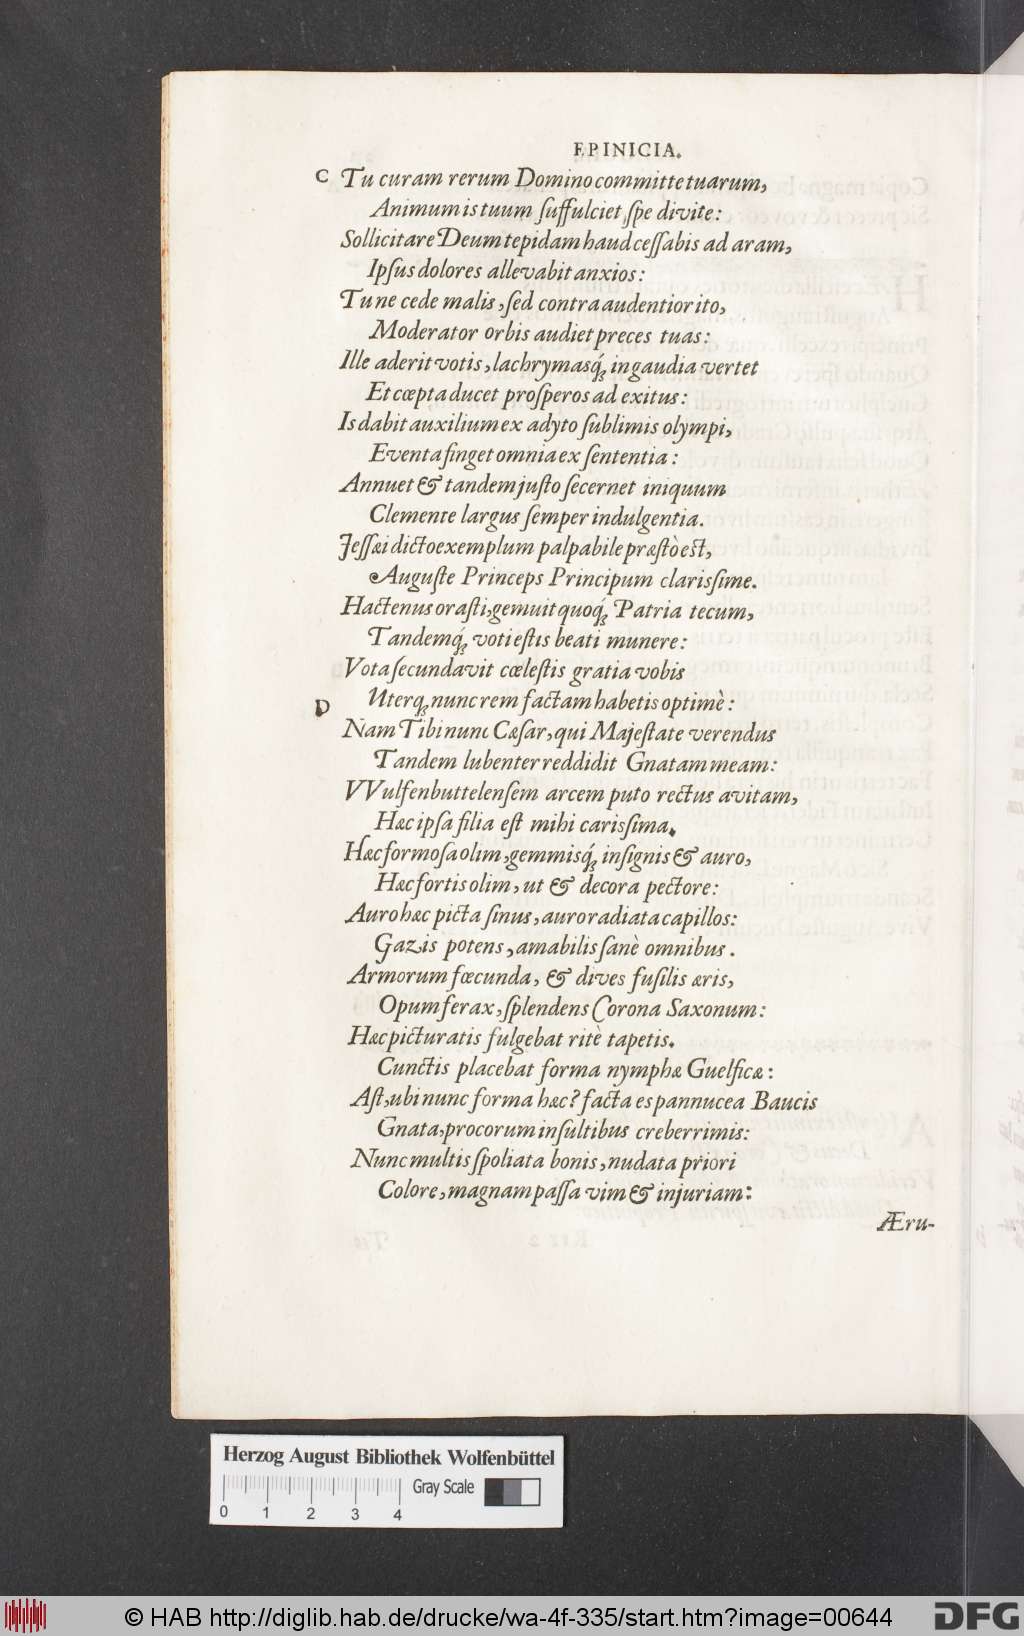 EPINICIA.
C Tu curam rerum Domino committe tuarum,
Animum is tuum ſuffulciet ſpe divite:
Sollicitare Deum tepidam haud ceſſabis ad aram,
Ipſus dolores allevabit anxios:
Tu ne cede malis, ſed contra audentior ito,
Moderator orbis audiet preces tuas:
Ille aderit votis, lachrymasq́ꝫ in gaudia vertet
Et cœpta ducet proſperos ad exitus:
Is dabit auxilium ex adyto ſublimis olympi,
Eventa finget omnia ex ſententia:
Annuet & tandem juſto ſecernet iniquum
Clemente largus ſemper indulgentia.
Jeſſæi dicto exemplum palpabile præſtò eſt,
Auguſte Princeps Principum clarisſime.
Hactenus oraſti, gemuit quoq́ꝫ Patria tecum,
Tandemq́ꝫ voti eſtis beati munere:
Vota ſecundavit cœleſtis gratia vobis
D Uterqꝫ nunc rem factam habetis optimè:
Nam Tibi nunc Cæſar, qui Majeſtate verendus
Tandem lubenter reddidit Gnatam meam:
VVulfenbuttelenſem arcem puto rectus avitam,
Hæc ipſa filia eſt mihi carisſima.
Hæc formoſa olim, gemmisq́ꝫ inſignis & auro,
Hæc fortis olim, ut & decora pectore:
Auro hæc picta ſinus, auro radiata capillos:
Gazis potens, amabilis ſanè omnibus.
Armorum fœcunda, & dives fuſilis æris,
Opum ferax, ſplendens Corona Saxonum:
Hæc picturatis fulgebat ritè tapetis.
Cunctis placebat forma nymphæ Guelficæ:
Aſt, ubi nunc forma hæc? facta es pannucea Baucis
Gnata, procorum inſultibus creberrimis:
Nunc multis ſpoliata bonis, nudata priori
Colore, magnam paſſa vim & injuriam:
Æru-
Herzog August Bibliothek Wolfenbüttel
Gray Scale
0 1 2 3 4
© HAB http://diglib.hab.de/drucke/wa-4f-335/start.htm?image=00644
DFG